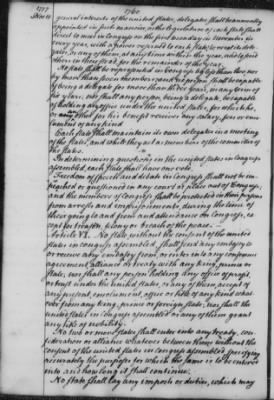 1777 1760
Nov 11 general interests of the united states, delegates shall be annually
appointed in such manner as the legislature of each state shall
direct to meet in Congress on the first monday in November in
every year, with a power reserved to each state to recal its dele-
gates, or any of them, at any time within the year, and to send
others in their stead, for the remainder of the year.
No state shall be represented in Congress by less than two nor
by more than seven members and no person shall be capable
of being a delegate for more than three years, in any term of
six years, nor shall any person, being a delegate, be capable
of holding any office under the united states, for which he,
or any other for his benefit receives any salary, fees or emo-
lument of any kind
Each state shall maintain its own delegates in a meeting
of the states, and while they act as members of the committee of
the states.
In determining questions in the united states in Congress
assembled, each state shall have one vote.
Freedom of speech and debate in Congress shall not be im-
peached or questioned in any court or place out of Congress,
and the members of Congress shall be protected in their persons
from arrests and imprisonments, during the time of
their going to and from and attendance on Congress, ex
cept for treason, felony or breach of the peace.
Article VI. No state, without the consent of the united
states in Congress assembled, shall send any embassy to
or receive any embassy from, or enter into any conference
agreement alliance or treaty with any king, prince or
state, nor shall any person holding any office of profit
or trust under the united states, or any of them, accept of
any present, emolument, office or title of any kind what
ever from any king, prince or foreign state, nor shall the
united states in Congress assembled or any of them grant
any title of nobility.
No two or more states shall enter into any treaty, con-
federation or alliance whatever between them without the
consent of the united states in Congress assembled specifying
accurately the purposes for which the same is to be entered
into and how long it shall continue.
No state shall lay any imposts or duties, which may